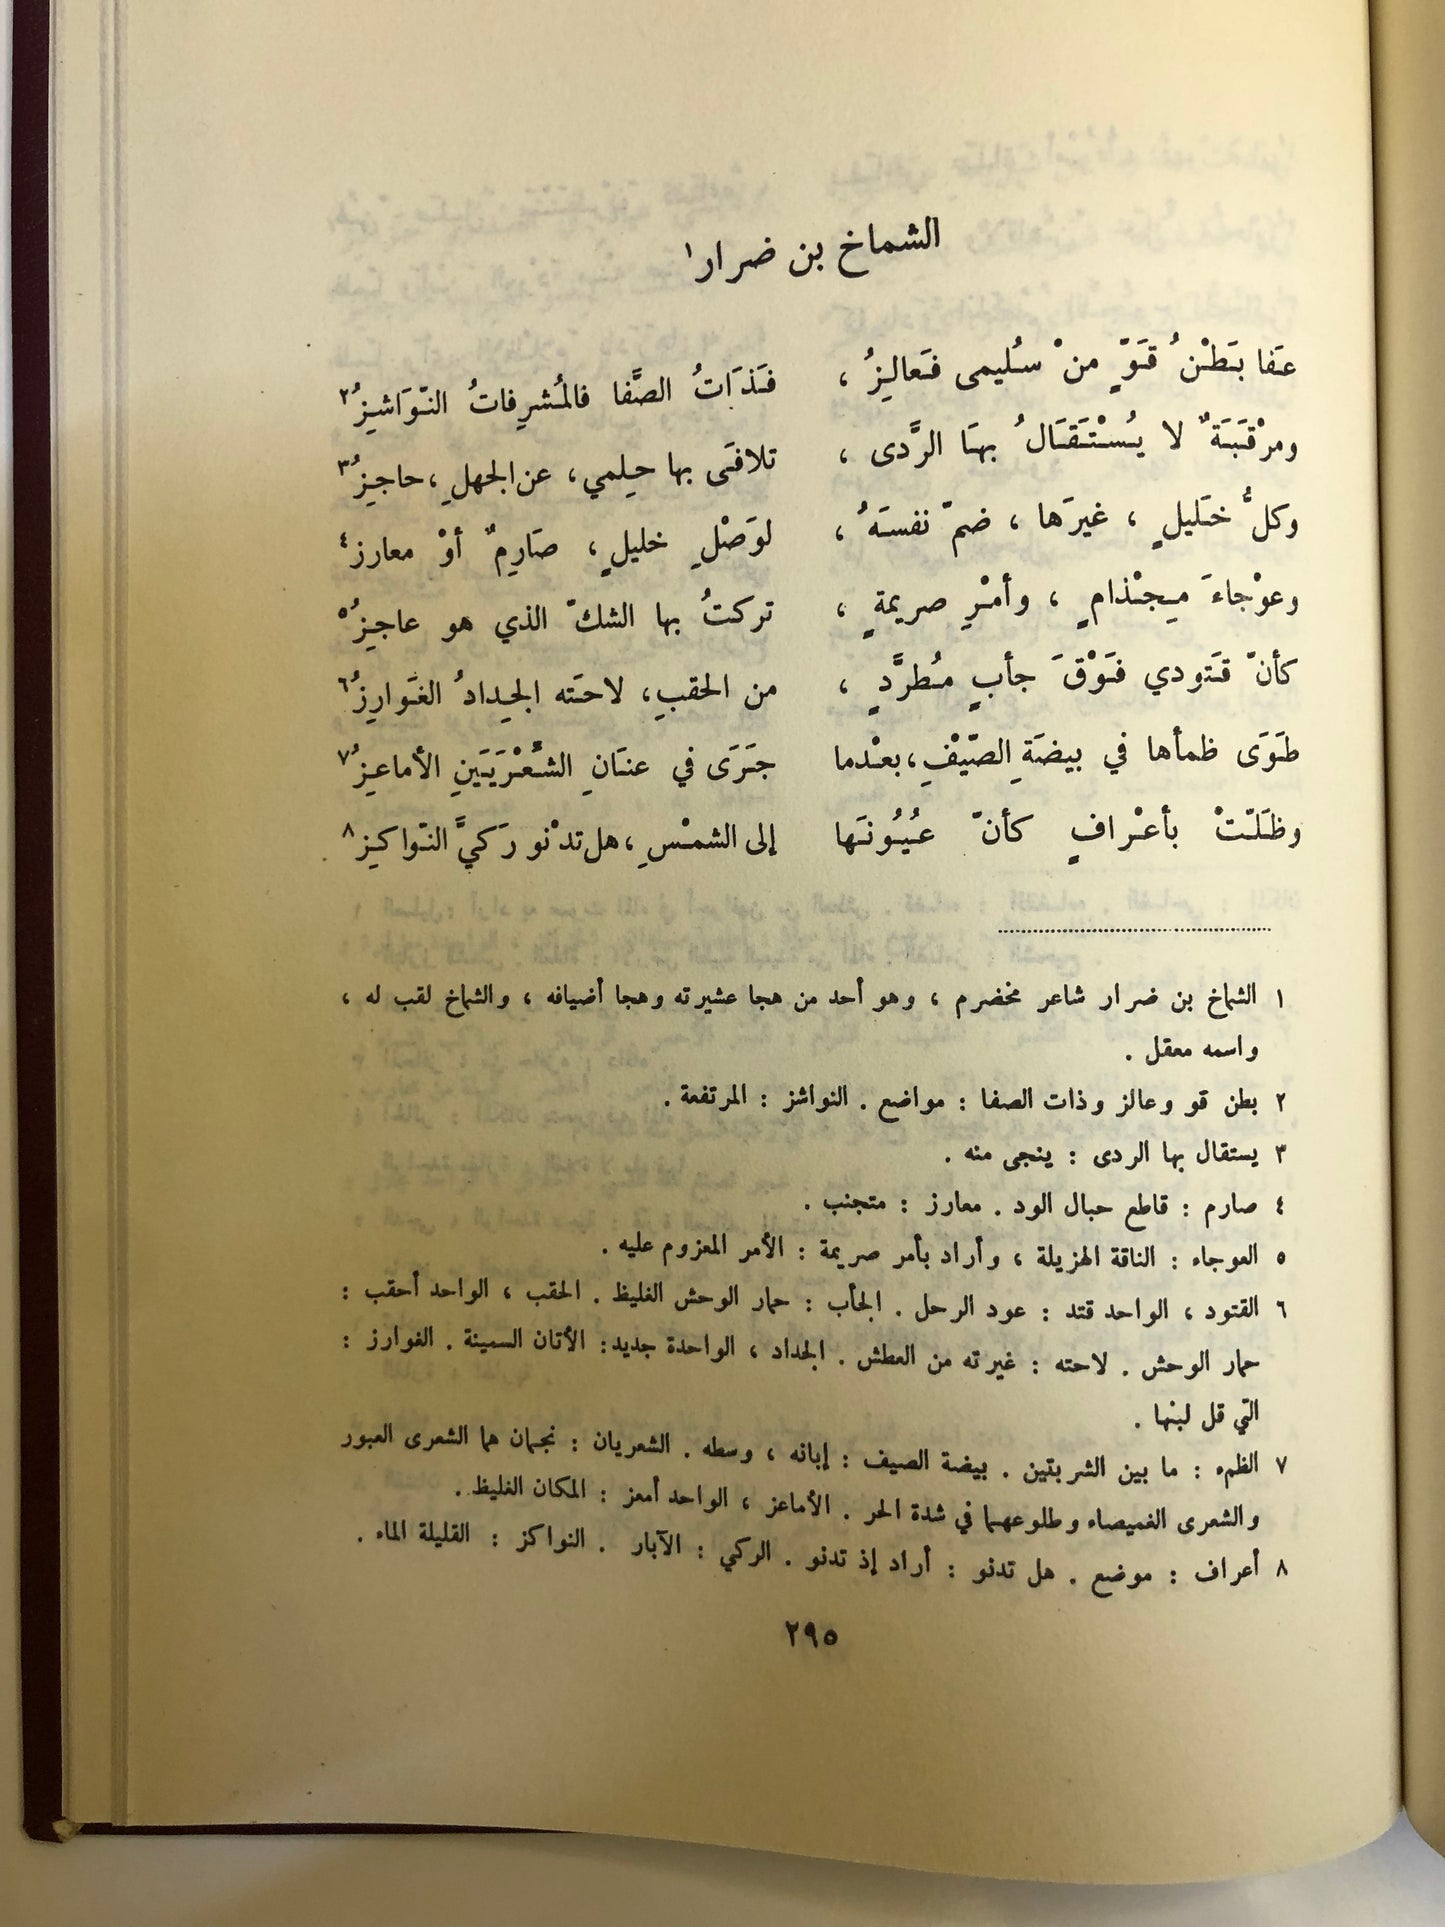 الشماخ بن ضرار١
عَفا بَطْنُ قَوٍّ منْ سُليمى فَعالِزُ ، فَذَاتُ الصَّفا فالمُشرِفاتُ النّوَاشِزُ٢
ومرْقَبَةٌ لا يُسْتَقَالُ بهَا الرَّدى ، تلافَى بها حِلمي ، عن الجهلِ ، حاجِزُ٣
وكلُّ خَليلٍ ، غيرَها ، ضمّ نفسَهُ ، لوَصْلِ خليلٍ ، صَارِمٌ أوْ معارز٤
وعوْجاءَ مِجْذامٍ ، وأمْرِ صريمةٍ ، تركتُ بها الشكّ الذي هو عاجِزُ٥
كأنّ قَتودي فَوْقَ جأبٍ مُطرَّدٍ ، من الحقبِ ، لاحَته الجِدادُ الغَوارِزُ٦
طَوَى ظمأها في بيضَةِ الصّيْفِ ، بعْدما جَرَى في عنَانِ الشَّعْرَيَينِ الأماعِزُ٧
وظَلّتْ بأعْرافٍ كأنّ عُيُونَها إلى الشمْسِ ، هل تدْنو رَكيَّ النّواكِز٨
١ الشماخ بن ضرار شاعر مخضرم ، وهو أحد من هجا عشيرته وهجا أضيافه ، والشماخ لقب له ،
واسمه معقل .
٢ بطن قو وعالز وذات الصفا : مواضع . النواشز : المرتفعة .
٣ يستقال بها الردى : ينجى منه .
٤ صارم : قاطع حبال الود . معارز : متجنب .
٥ العوجاء : الناقة الهزيلة ، وأراد بأمر صريمة : الأمر المعزوم عليه .
٦ القتود ، الواحد قتد : عود الرحل . الجأب : حمار الوحش الغليظ . الحقب ، الواحد أحقب :
حمار الوحش . لاحته : غيرته من العطش . الجداد ، الواحدة جديد : الأتان السمينة . الغوارز :
التي قل لبنها .
٧ الظمء : ما بين الشربتين . بيضة الصيف : إبانه ، وسطه . الشعريان : نجمان هما الشعرى العبور
والشعرى الغميصاء وطلوعهما في شدة الحر . الأماعز ، الواحد أمعز : المكان الغليظ .
٨ أعراف : موضع . هل تدنو : أراد إذ تدنو . الركي : الآبار . النواكز : القليلة الماء .
٢٩٥